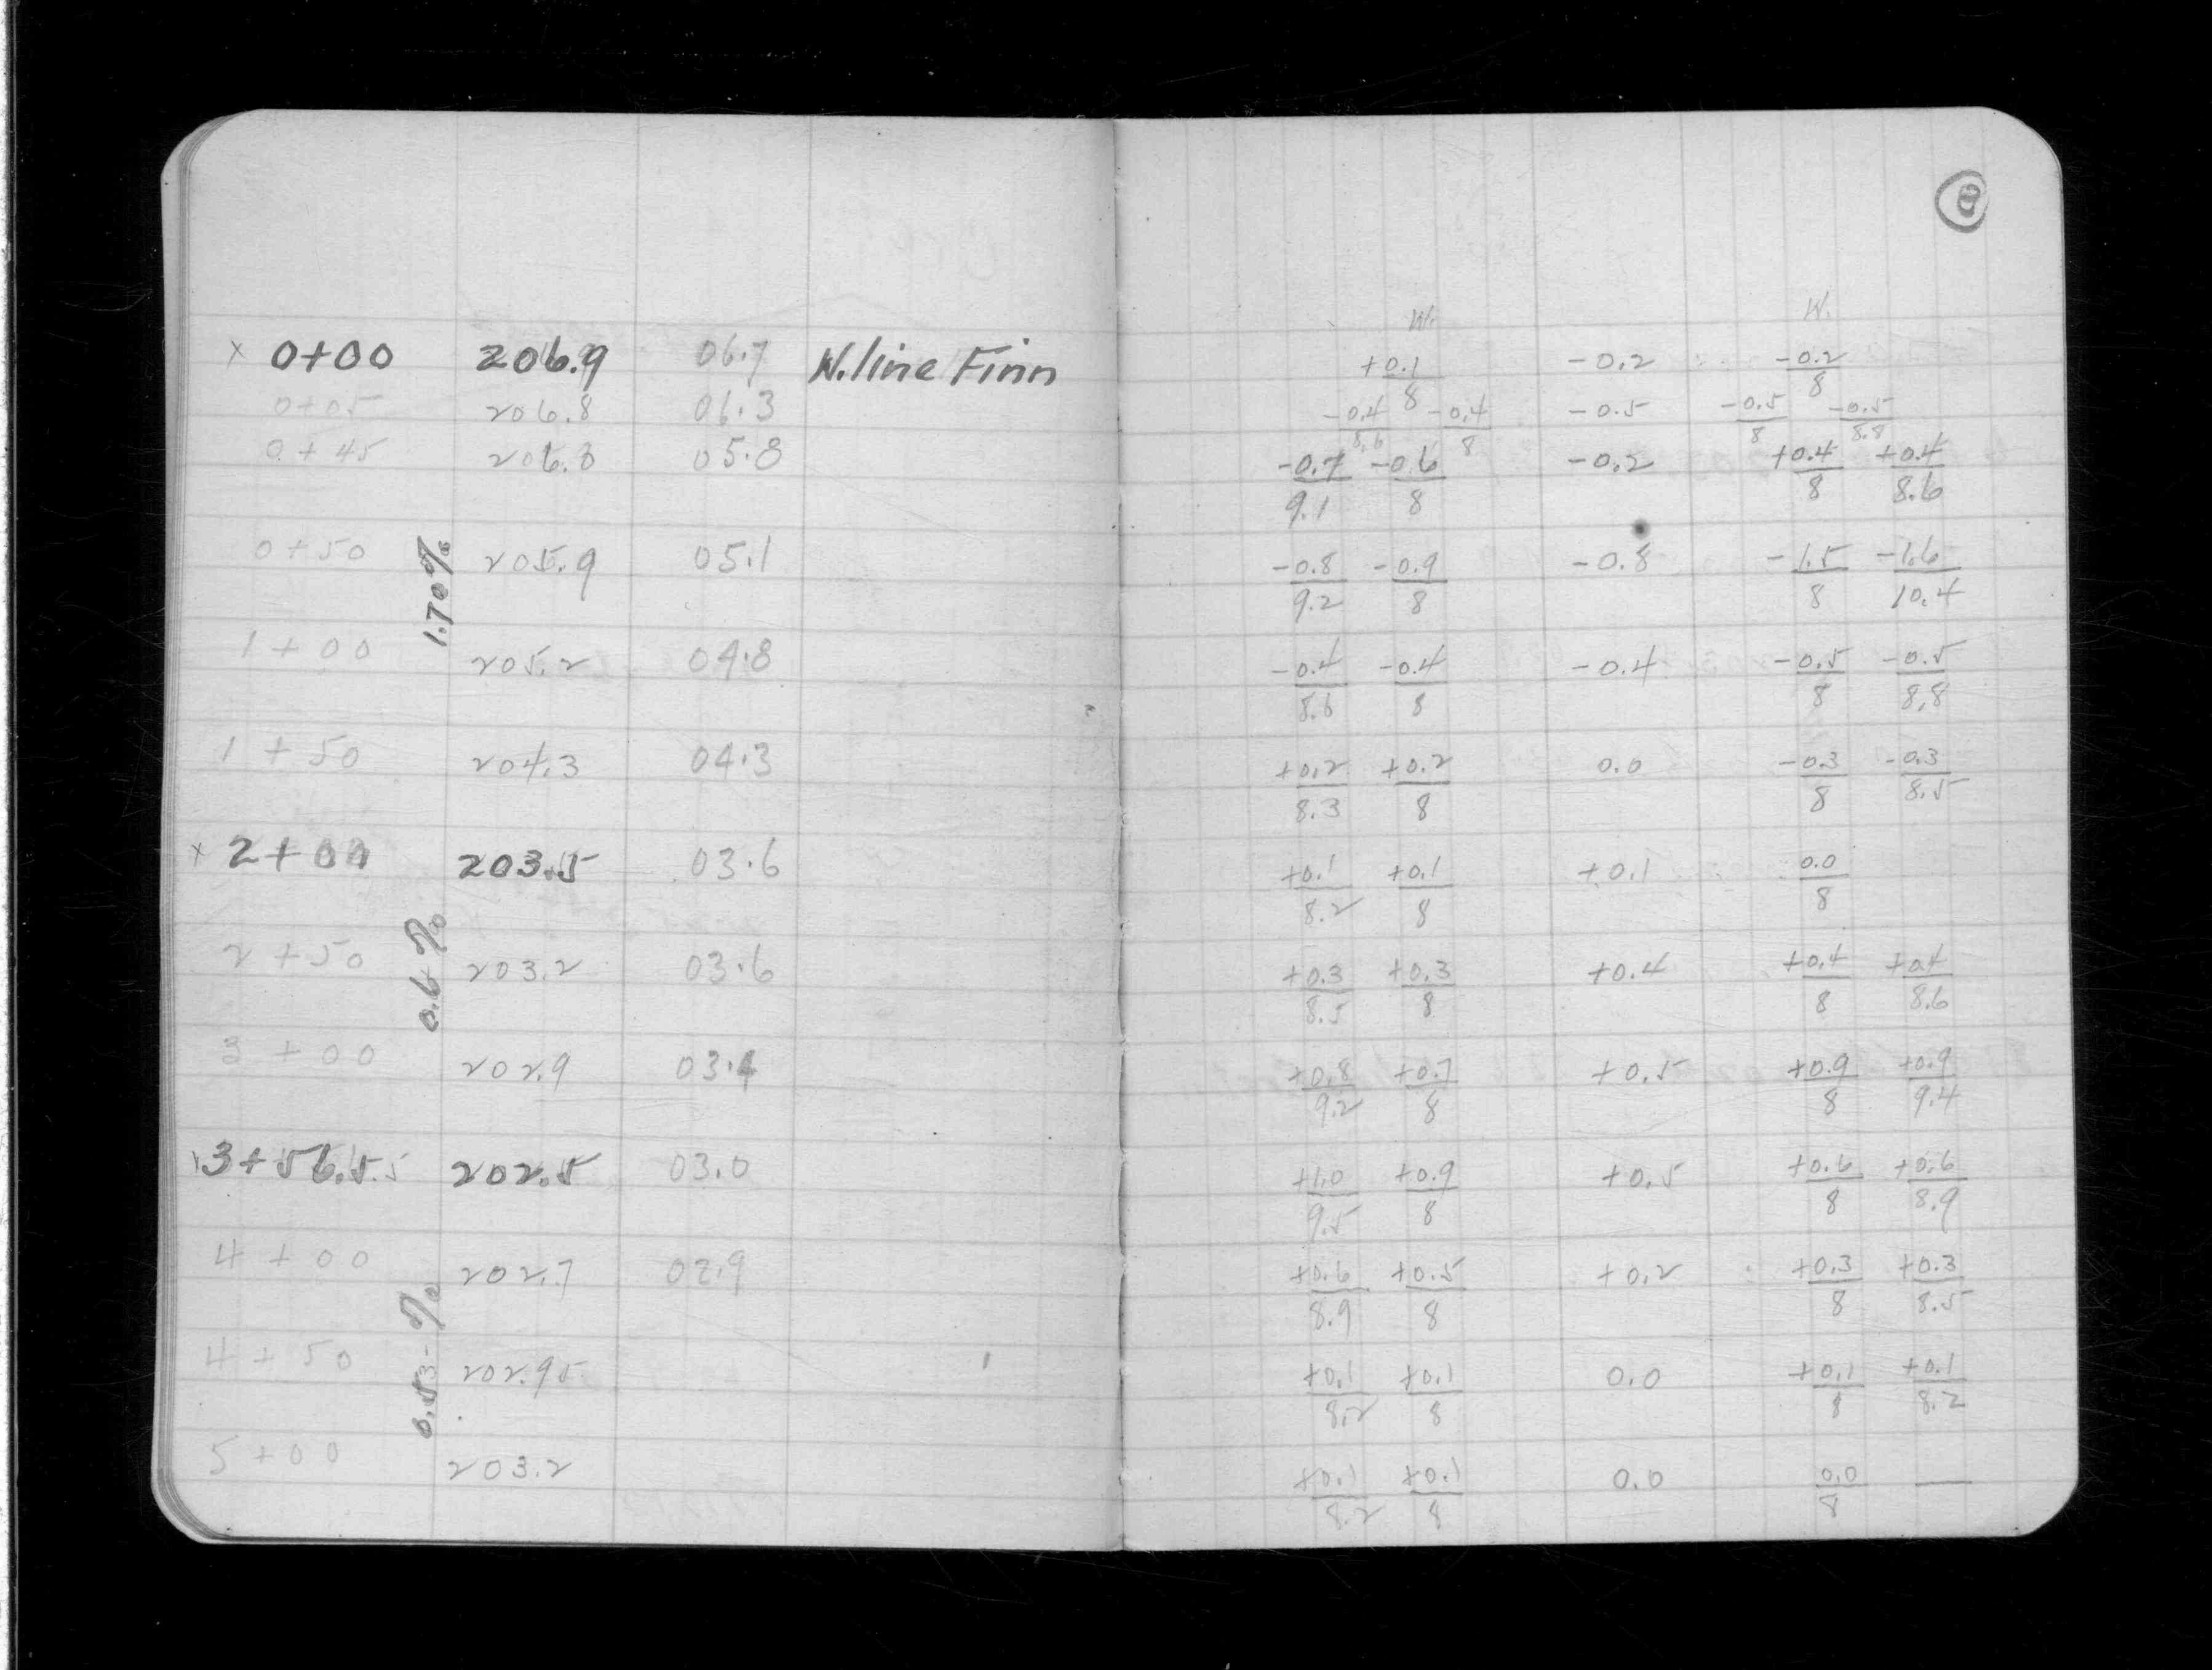 8
W. W.
x 0+00 206.9 06.7 N. line Finn +0.1/8 -0.2 -0.2/8
0+05 206.8 06.3 -0.4/8.6 -0.4/8 -0.5 -0.5/8 -0.5/8.8
0+45 206.3 05.8 -0.7/9.1 -0.6/8 -0.2 +0.4/8 +0.4/8.6
0+50 205.9 05.1 -0.8/9.2 -0.9/8 -0.8 -1.5/8 -1.6/10.4
1.70%
1+00 205.2 04.8 -0.4/8.6 -0.4/8 -0.4 -0.5/8 -0.5/8.8
1+50 204.3 04.3 +0.2/8.3 +0.2/8 0.0 -0.3/8 -0.3/8.5
x 2+00 203.5 03.6 +0.1/8.2 +0.1/8 +0.1 0.0/8
2+50 203.2 03.6 +0.3/8.5 +0.3/8 +0.4 +0.4/8 +0.4/8.6
0.6%
3+00 202.9 03.4 +0.8/9.2 +0.7/8 +0.5 +0.9/8 +0.9/9.4
x 3+56.55 202.5 03.0 +1.0/9.5 +0.9/8 +0.5 +0.6/8 +0.6/8.9
4+00 202.7 02.9 +0.6/8.9 +0.5/8 +0.2 +0.3/8 +0.3/8.5
0.53%
4+50 202.95 +0.1/8.2 +0.1/8 0.0 +0.1/8 +0.1/8.2
5+00 203.2 +0.1/8.2 +0.1/8 0.0 0.0/8 —